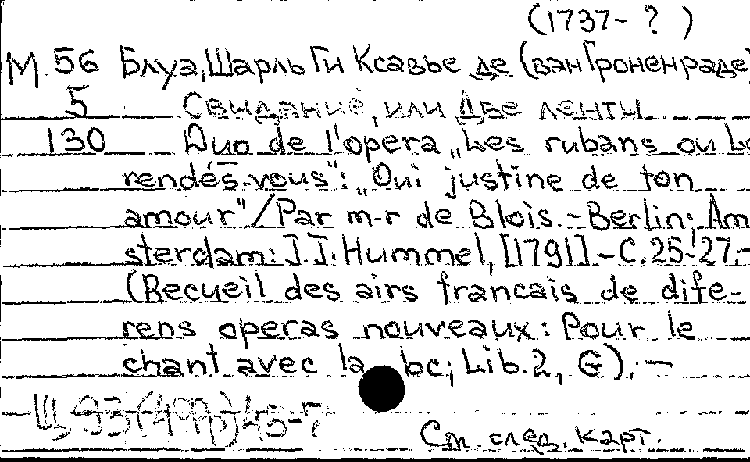 (1737- ? )
М.56 Блуа, Шарль Ги Ксавье де (ван Гроненраде)
5 Свидание, или Две ленты
130 Duo de l'opera „Les rubans ou Le
rendés-vous": „Oui justine de ton
amour"/Par m-r de Blois.-Berlin; Am
sterdam: J.J. Hummel, [1791].-C.25-27.-
(Recueil des airs francais de dife-
rens operas nouveaux: Pour le
chant avec la bc; Lib.2, G).-
См. след. карт.